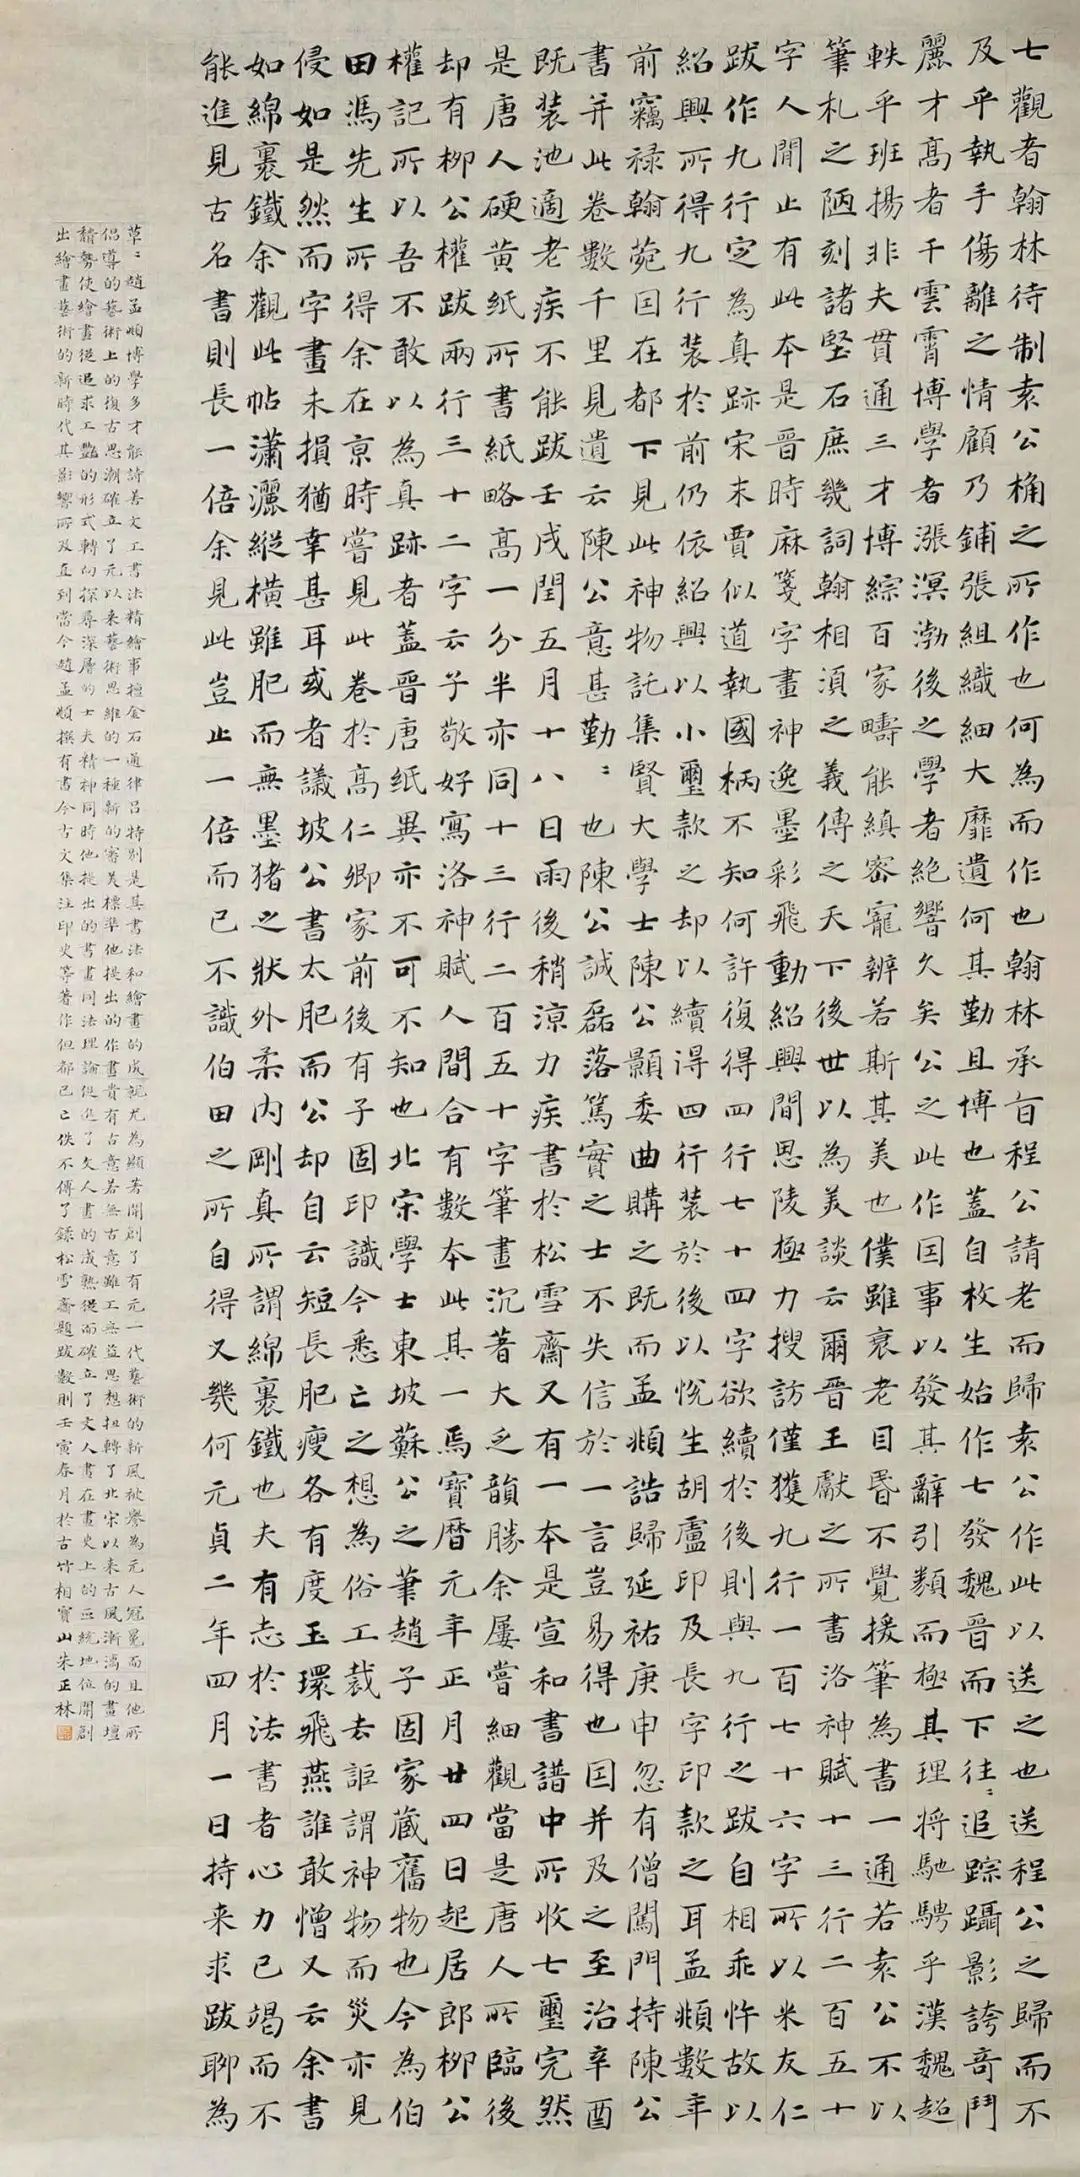 七觀者翰林待制袁公桷之所作也何為而作也翰林承旨程公請老而歸袁公作此以送之也送程公之歸而不
及乎執手傷離之情顧乃鋪張組織細大靡遺何其勤且博也蓋自枚生始作七發魏晉而下往〻追踪躡影誇奇鬥
麗才高者千雲霄博學者漲溟渤後之學者絕響久矣公之此作因事以發其辭引類而極其理將馳騁乎漢魏超
軼乎班揚非夫貫通三才博綜百家疇能縝密寵辨若斯其美也僕雖衰老目昏不覺援筆為書一通若袁公不以
筆札之陋刻諸堅石庶幾詞翰相須之義傳之天下後世以為美談云爾晉王獻之所書洛神賦十三行二百五十
字人間止有此本是晉時麻箋字畫神逸墨彩飛動紹興間思陵極力搜訪僅獲九行一百七十六字所以米友仁
跋作九行定為真跡宋末賈似道執國柄不知何許復得四行七十四字欲續於後則與九行之跋自相乖忤故以
紹興所得九行裝於前仍依紹興以小璽款之却以續得四行裝於後以悅生胡盧印及長字印款之耳孟頫數年
前竊祿翰菀因在都下見此神物託集賢大學士陳公顥委曲購之既而孟頫誥歸延祐庚申忽有僧闖門持陳公
書并此卷數千里見遺云陳公意甚勤〻也陳公誠磊落篤實之士不失信於一言豈易得也因并及之至治辛酉
既装池適老疾不能跋壬戌閏五月十八日雨後稍涼力疾書於松雪齋又有一本是宣和書譜中所收七璽完然
是唐人硬黃紙所書紙略高一分半亦同十三行二百五十字筆畫沉著大乏韻勝余屢嘗細觀當是唐人所臨後
却有柳公權跋兩行三十二字云子敬好寫洛神賦人間合有數本此其一焉寶曆元年正月廿四日起居郎柳公
權記所以吾不敢以為真跡者蓋晉唐紙異亦不可不知也北宋學士東坡蘇公之筆趙子固家藏舊物也今為伯
田馮先生所得余在京時嘗見此卷於高仁卿家前後有子固印識今悉亡之想為俗工裁去詎謂神物而災亦見
侵如是然而字畫未損猶幸甚耳或者議坡公書太肥而公却自云短長肥瘦各有度玉環飛燕誰敢憎又云余書
如綿裹鐵余觀此帖瀟灑縱橫雖肥而無墨猪之狀外柔内剛真所謂綿裹鐵也夫有志於法書者心力已竭而不
能進見古名書則長一倍余見此豈止一倍而已不識伯田之所自得又幾何元貞二年四月一日持来求跋聊為
草〻趙孟頫博學多才能詩善文工書法精繪事擅金石通律呂特別是其書法和繪畫的成就尤為顯著開創了有元一代藝術的新風被譽為元人冠冕而且他所
倡導的藝術上的復古思潮確立了元以来藝術思維的一種新的審美標準他提出的作畫貴有古意若無古意雖工無益思想扭轉了北宋以来古風漸漓的畫壇
頹勢使繪畫從追求工艷的形式轉向探尋深層的士夫精神同時他提出的書畫同法理論促進了文人畫的成熟從而確立了文人畫在畫史上的正統地位開創
出繪畫藝術的新時代其影響所及直到當今趙孟頫撰有書今古文集注印史等著作但都已亡佚不傳了錄松雪齋題跋數則壬寅春月於古竹相寶山朱正林